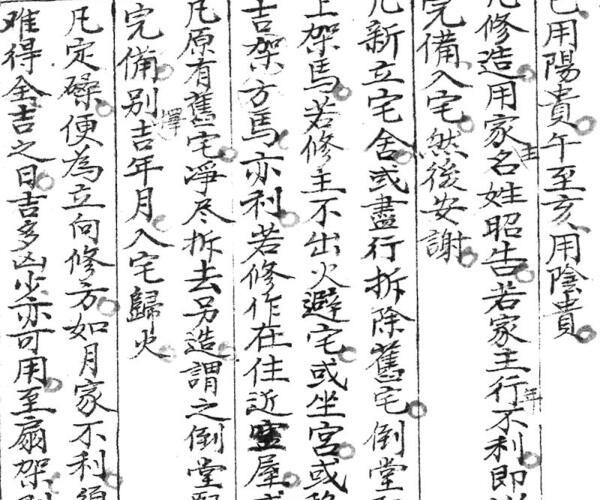 已用陽貴午至亥用陰貴
凡修造用家主名姓昭告若家主行年不利即
完備入宅然後安謝
凡新立宅舍或盡行拆除舊宅倒堂
上架馬若修主不出火避宅或坐宮或
吉架方馬亦利若修作在住近空屋或
凡原有舊宅凈尽拆去另造謂之倒堂
完備别擇吉年月入宅歸火
凡定磉便為立向修方如月家不利須
难得全吉之日吉多凶少亦可用至扇架